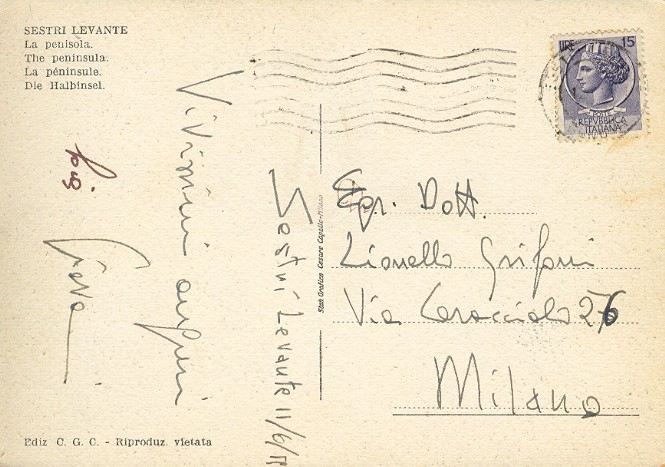 SESTRI LEVANTE
La penisola.
The peninsula.
La péninsule.
Die Halbinsel.
LIRE 15
POSTE
REPVBBLICA
ITALIANA
Vivissimi auguri
Sestri Levante 11/6/
Stab. Grafico Cesare Capello-Milano
Egr. Dott.
Lionello Grifoni
Via Caracciolo 26
Milano
Ediz C. G. C. - Riproduz. vietata